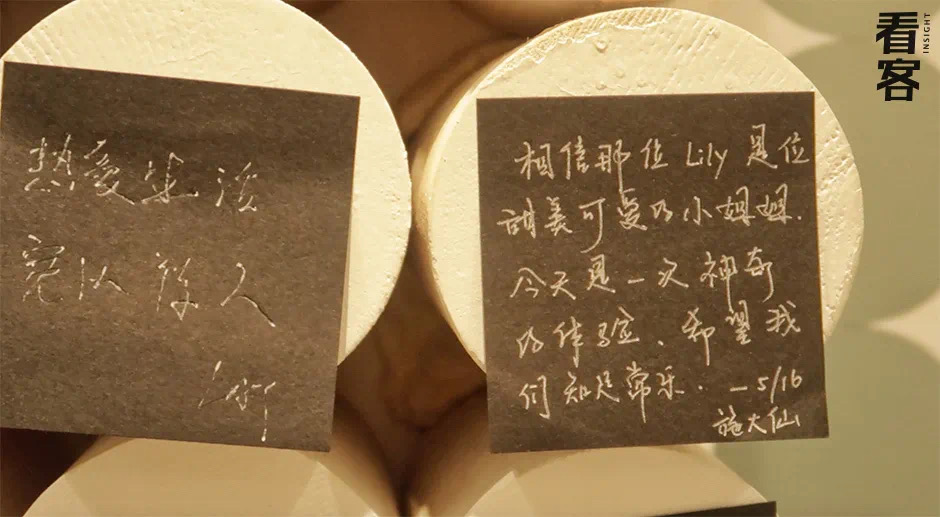 热爱生活
宽以待人
相信那位 Lily 是位
甜美可爱的小姐姐.
今天是一次神奇
的体验、希望我
们知足常乐. —5/16
施大仙
看客
INSIGHT